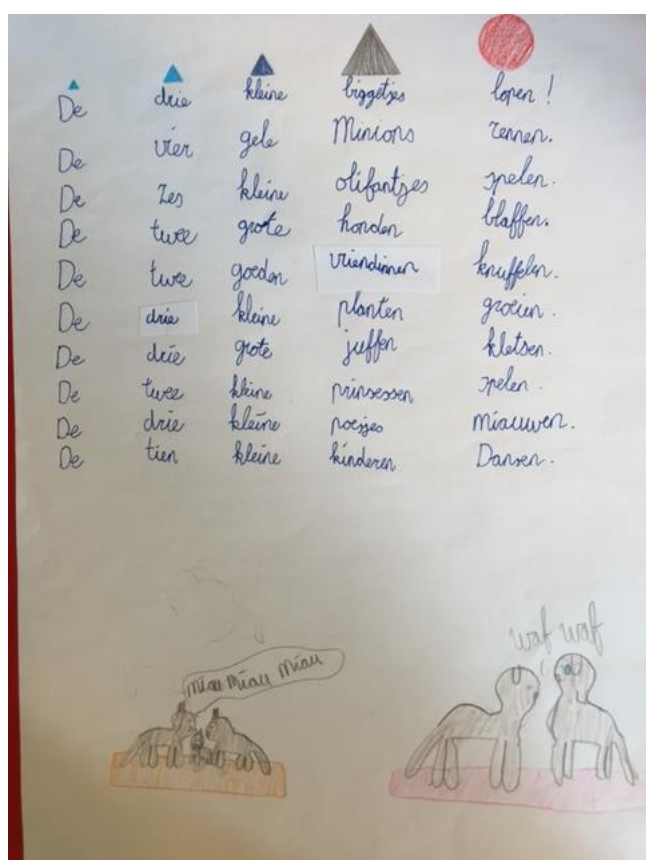 De drie kleine biggetjes lopen !
De vier gele Minions rennen.
De Zes kleine olifantjes spelen.
De twee grote honden blaffen.
De twee goeden vriendinnen knuffelen.
De drie kleine planten groeien.
De drie grote juffen kletsen.
De twee kleine prinsessen spelen.
De drie kleine poesjes miauwen.
De tien kleine kinderen Dansen.
waf waf
miau miau miau